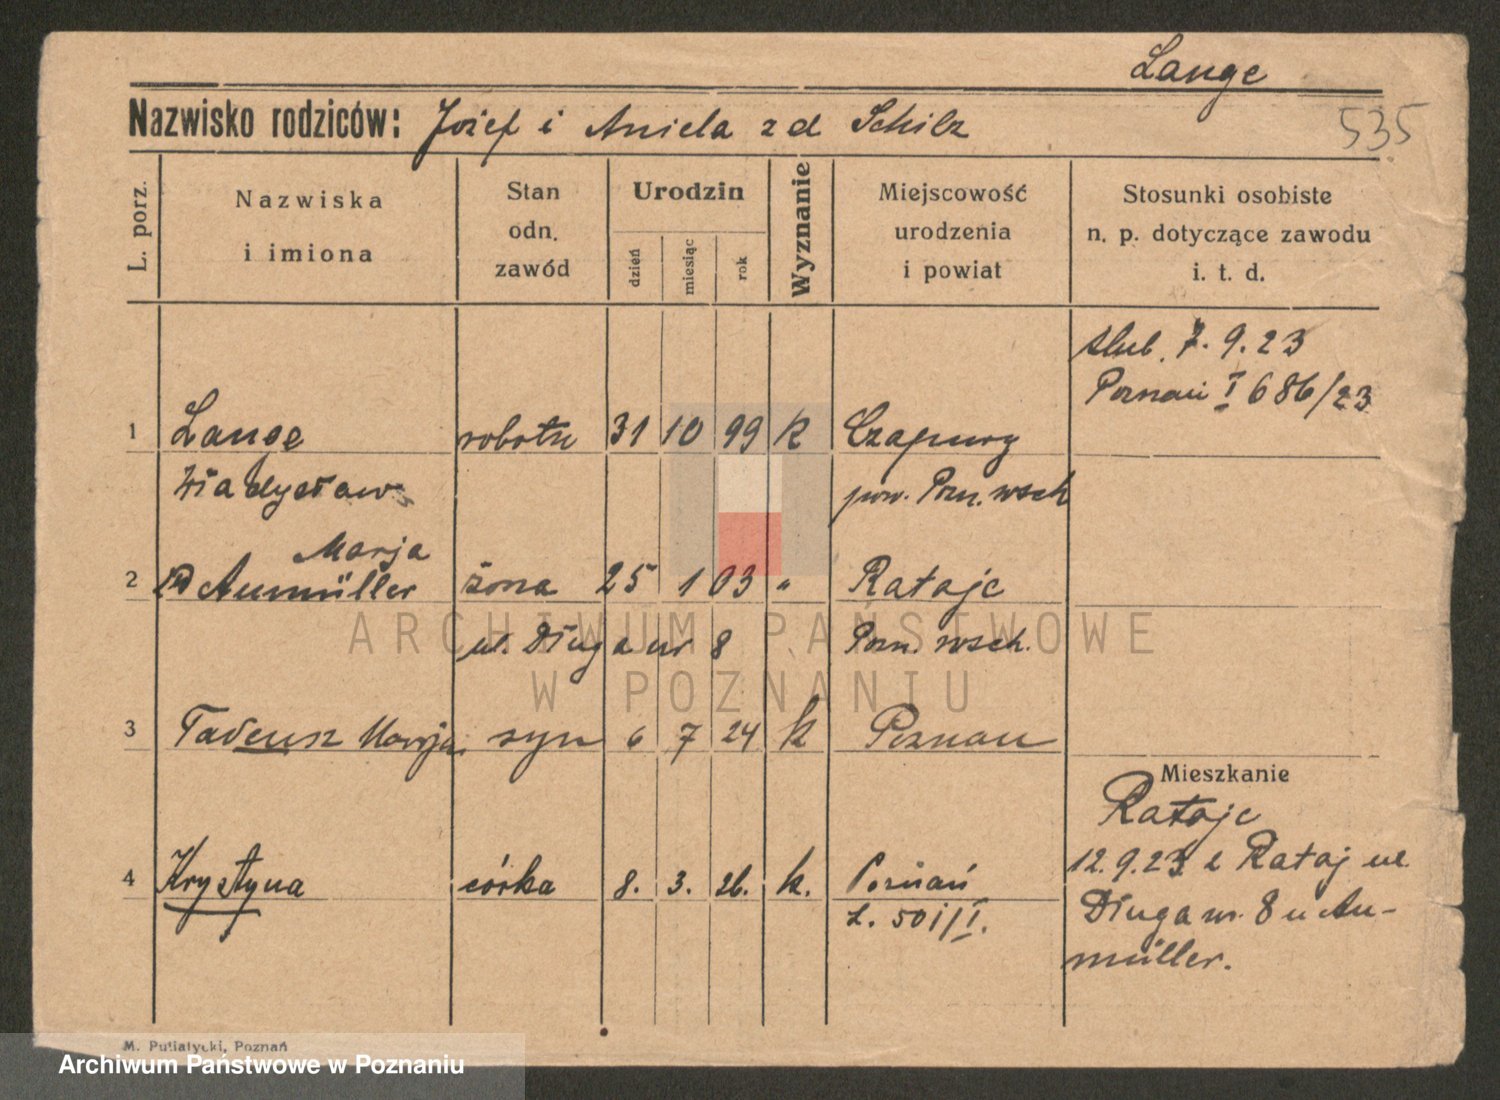 Lange
Nazwisko rodziców: Józef i Aniela zd Schilz
535
L. porz.
Nazwiska
i imiona
Stan
odn.
zawód
Urodzin
dzień
miesiąc
rok
Wyznanie
Miejscowość
urodzenia
i powiat
Stosunki osobiste
n. p. dotyczące zawodu
i. t. d.
ślub. 7. 9. 23
Poznań I 686/23
1 Lange robotn 31 10 99 k Czapury
Władysław pow. Pozn. wsch
Marja
2 zd Aumüller żona 25 1 03 " Rataje
ul. Długa nr 8 Pozn. wsch.
3 Tadeusz Marja syn 6 7 24 k Poznań
Mieszkanie
Rataje
12.9.23 z Rataj ul.
Długa nr. 8 u Au-
müller.
4 Krystyna córka 8. 3. 26. k. Poznań
L. 501/I.
M. Putiatycki, Poznań
ARCHIWUM PAŃSTWOWE
W POZNANIU
Archiwum Państwowe w Poznaniu